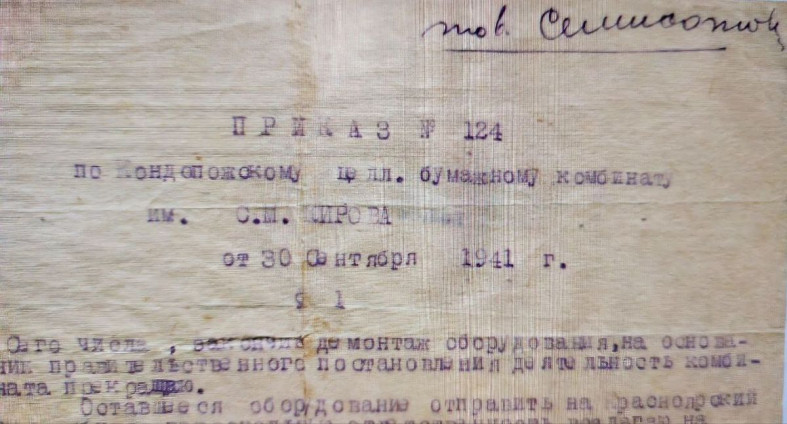 тов.
П Р И К А З № 124
по Кондопожскому целл. бумажному комбинату
им. С.М. КИРОВА
от 30 Сентября 1941 г.
§ 1
Сего числа, закончив демонтаж оборудования, на основа-
нии правительственного постановления деятельность комби-
ната прекращаю.
Оставшееся оборудование отправить на Красноярский